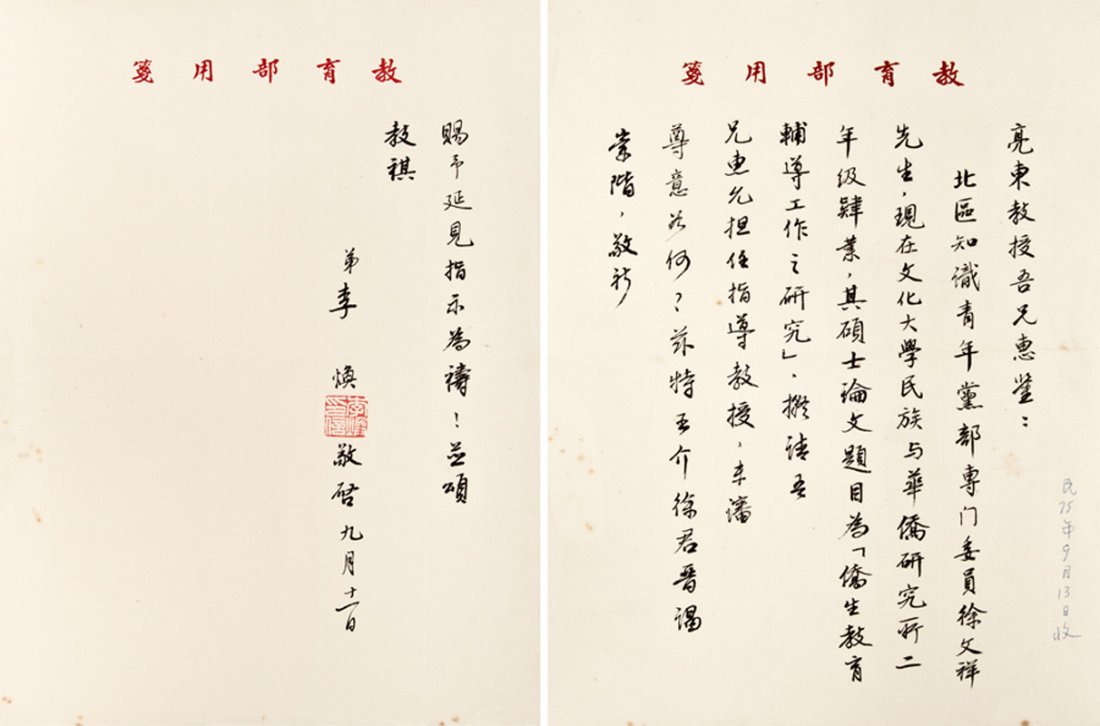 教育部用箋
亮東教授吾兄惠鑒：
北區知識青年黨部專门委員徐文祥
先生，現在文化大學民族与華僑研究所二
年级肄業，其碩士論文題目為「僑生教育
輔導工作之研究」，擬請吾
兄惠允担任指導教授，未審
尊意如何？茲特玉介徐君晋謁
崇階，敬祈
民75年9月13日收
教育部用箋
賜予延見指示為禱！並頌
教祺
弟李煥
李煥
敬啓九月十一日